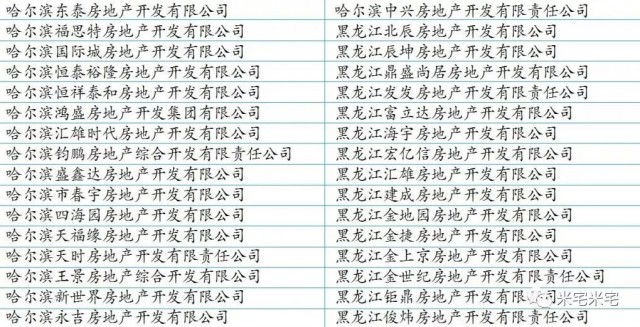 哈尔滨东泰房地产开发有限公司 哈尔滨中兴房地产开发有限责任公司
哈尔滨福思特房地产开发有限公司 黑龙江北辰房地产开发有限公司
哈尔滨国际城房地产开发有限公司 黑龙江辰坤房地产开发有限公司
哈尔滨恒泰裕隆房地产开发有限公司 黑龙江鼎盛尚居房地产开发有限公司
哈尔滨恒祥泰和房地产开发有限公司 黑龙江发发房地产开发有限责任公司
哈尔滨鸿盛房地产开发集团有限公司 黑龙江富立达房地产开发有限公司
哈尔滨汇雄时代房地产开发有限公司 黑龙江海宇房地产开发有限公司
哈尔滨钧鹏房地产综合开发有限责任公司 黑龙江宏亿信房地产开发有限公司
哈尔滨盛鑫达房地产开发有限公司 黑龙江汇雄房地产开发有限公司
哈尔滨市春宇房地产开发有限公司 黑龙江建成房地产开发有限公司
哈尔滨四海园房地产开发有限公司 黑龙江金地园房地产开发有限公司
哈尔滨天福缘房地产开发有限公司 黑龙江金捷房地产开发有限公司
哈尔滨天时房地产开发有限责任公司 黑龙江金上京房地产开发有限公司
哈尔滨王景房地产综合开发有限公司 黑龙江金世纪房地产开发有限责任公司
哈尔滨新世界房地产开发有限公司 黑龙江钜鼎房地产开发有限公司
哈尔滨永吉房地产开发有限公司 黑龙江俊炜房地产开发有限公司
米宅米宅